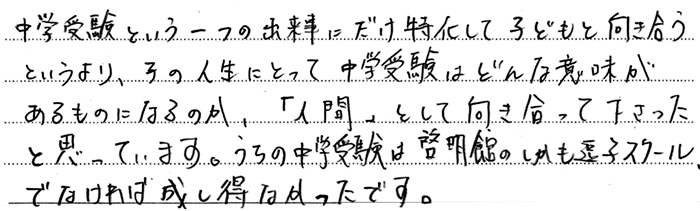 中学受験という一つの出来事にだけ特化して子どもと向き合う
というより、その人生にとって中学受験はどんな意味が
あるものになるのか、「人間」として向き合って下さった
と思っています。うちの中学受験は啓明館のしかも逗子スクール
でなければ成し得なかったです。